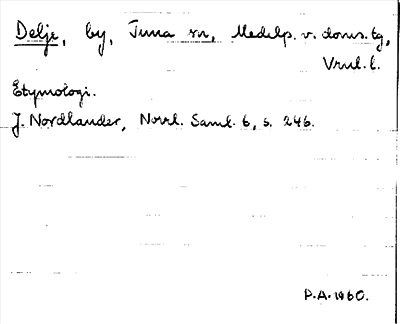 Delje, by, Tuna sn, Medelp. v. doms. tg,
Vnl. l.
Etymologi.
J. Nordlander, Norrl. Saml. 6, s. 246.
P.A. 1960.